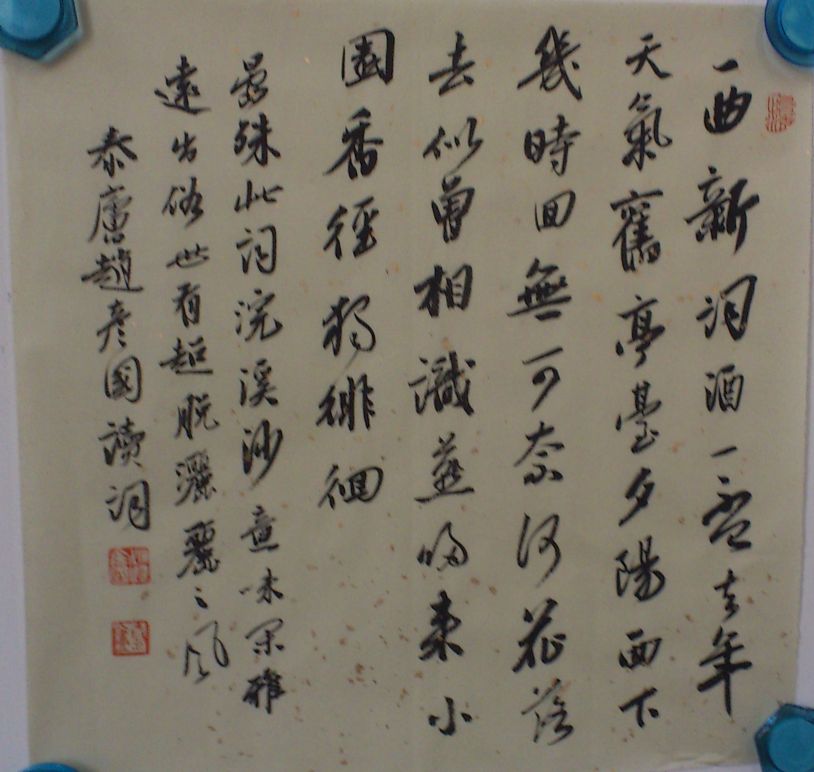 一曲新詞酒一盃去年
天氣舊亭臺夕陽西下
幾時回無可奈何花落
去似曾相識燕歸來小
園香徑獨徘徊
晏殊此詞浣溪沙意味雅
遠出俗世有超脫灑麗々風
泰趙彦國讀詞